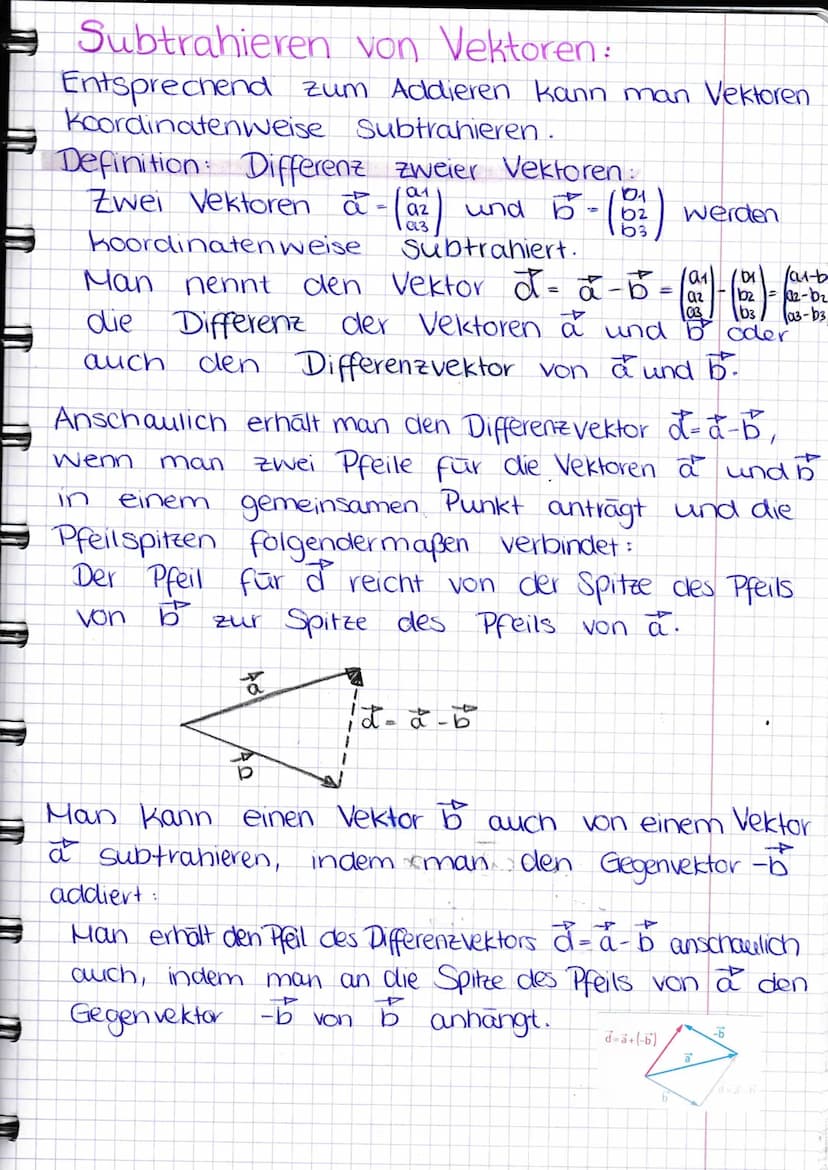 Subtrahieren von Vektoren:
Entsprechend zum Addieren kann man Vektoren
koordinatenweise subtrahieren.
Definition: Differenz zweier Vektoren:
Zwei Vektoren a⃗ = (a1 a2 a3) und b⃗ = (b1 b2 b3) werden
koordinatenweise subtrahiert.
Man nennt den Vektor d⃗ = a⃗ - b⃗ = (a1 a2 a3) - (b1 b2 b3) = (a1-b a2-b2 a3-b3
die Differenz der Vektoren a⃗ und b⃗ oder
auch den Differenzvektor von a⃗ und b⃗.
Anschaulich erhält man den Differenzvektor d⃗ = a⃗ - b⃗,
wenn man zwei Pfeile für die Vektoren a⃗ und b⃗
in einem gemeinsamen Punkt anträgt und die
Pfeilspitzen folgendermaßen verbindet:
Der Pfeil für d⃗ reicht von der Spitze des Pfeils
von b⃗ zur Spitze des Pfeils von a⃗.
a⃗
d⃗ = a⃗ - b⃗
b⃗
Man kann einen Vektor b⃗ auch von einem Vektor
a⃗ subtrahieren, indem man den Gegenvektor -b⃗
addiert:
Man erhält den Pfeil des Differenzvektors d⃗ = a⃗ - b⃗ anschaulich
auch, indem man an die Spitze des Pfeils von a⃗ den
Gegenvektor -b⃗ von b⃗ anhängt.
d⃗ = a⃗ + (-b⃗)
-b⃗
a⃗
b⃗